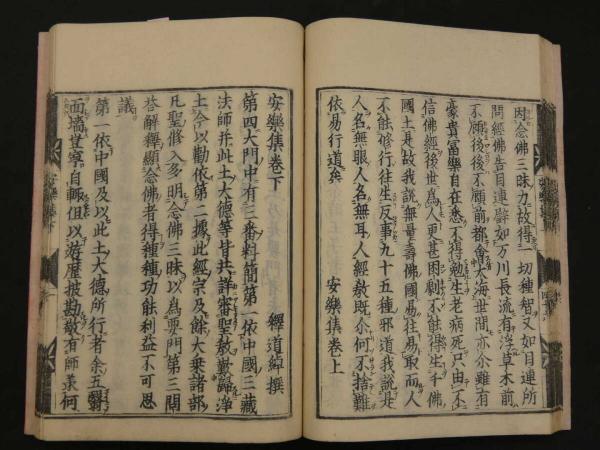 因念佛三昧力故得一切種智又如目連所
問經佛告目連譬如万川長流有浮草木前
不顧後後不顧前都會大海世間亦尒雖有
豪貴冨樂自在悉不得勉生老病死只由不
信佛經後世為人更甚困劇不能得生千佛
國土是故我說無量壽佛國易往易取而人
不能修行往生反事九十五種邪道我說是
人名無眼人名無耳人經教既尒何不捨難
依易行道矣
安樂集卷上
安樂集卷下
釋道綽撰
第四大門中有三番料簡第一依中國三藏
法師并此土大德等皆共詳審聖教歎歸淨
土今以勸依第二據此經宗及餘大乗諸部
凡聖修入多明念佛三昧以為要門第三問
荅解釋顯念佛者得種種功能利益不可思
議
第一依中國及以此土大德所行者余五翳
面墻豈寧自輙但以遊歷披勘敬有師承何
安樂集下